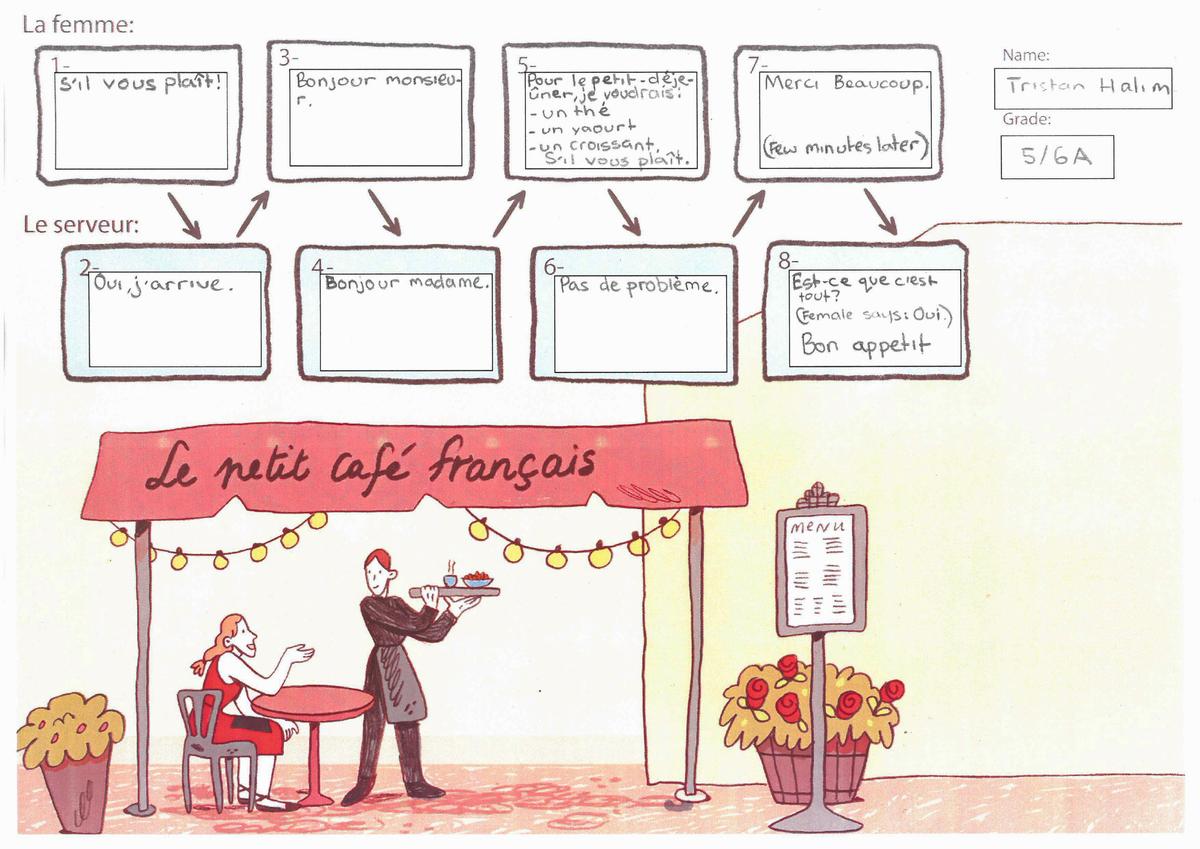 La femme:
1-
S'il vous plaît!
3-
Bonjour monsieu-
r.
5-
Pour le petit-déje-
ûner, je voudrais:
- un thé
- un yaourt
- un croissant,
S'il vous plaît.
7-
Merci Beaucoup.
(Few minutes later)
Name:
Tristan Halim
Grade:
5/6A
Le serveur:
2-
Oui, j'arrive.
4-
Bonjour madame.
6-
Pas de problème.
8-
Est-ce que c'est
tout?
(Female says: Oui.)
Bon appetit
Le petit café français
MENU